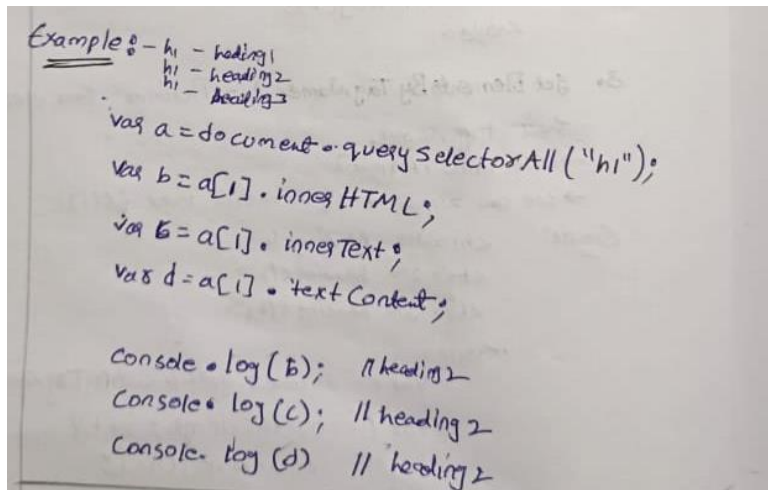 Example:- h1 - heding1
h1 - heading2
h1 - heading3
var a = document.querySelectorAll("h1");
var b = a[1].innerHTML;
var c = a[1].innerText;
var d = a[1].textContent;
console.log(b); // heading2
console.log(c); // heading 2
console.log(d) // heading2